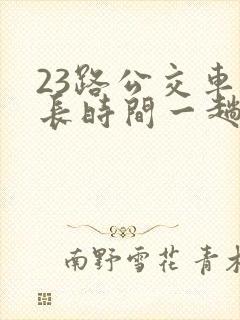 23路公交車
長時間一趟
南野雪花 青木